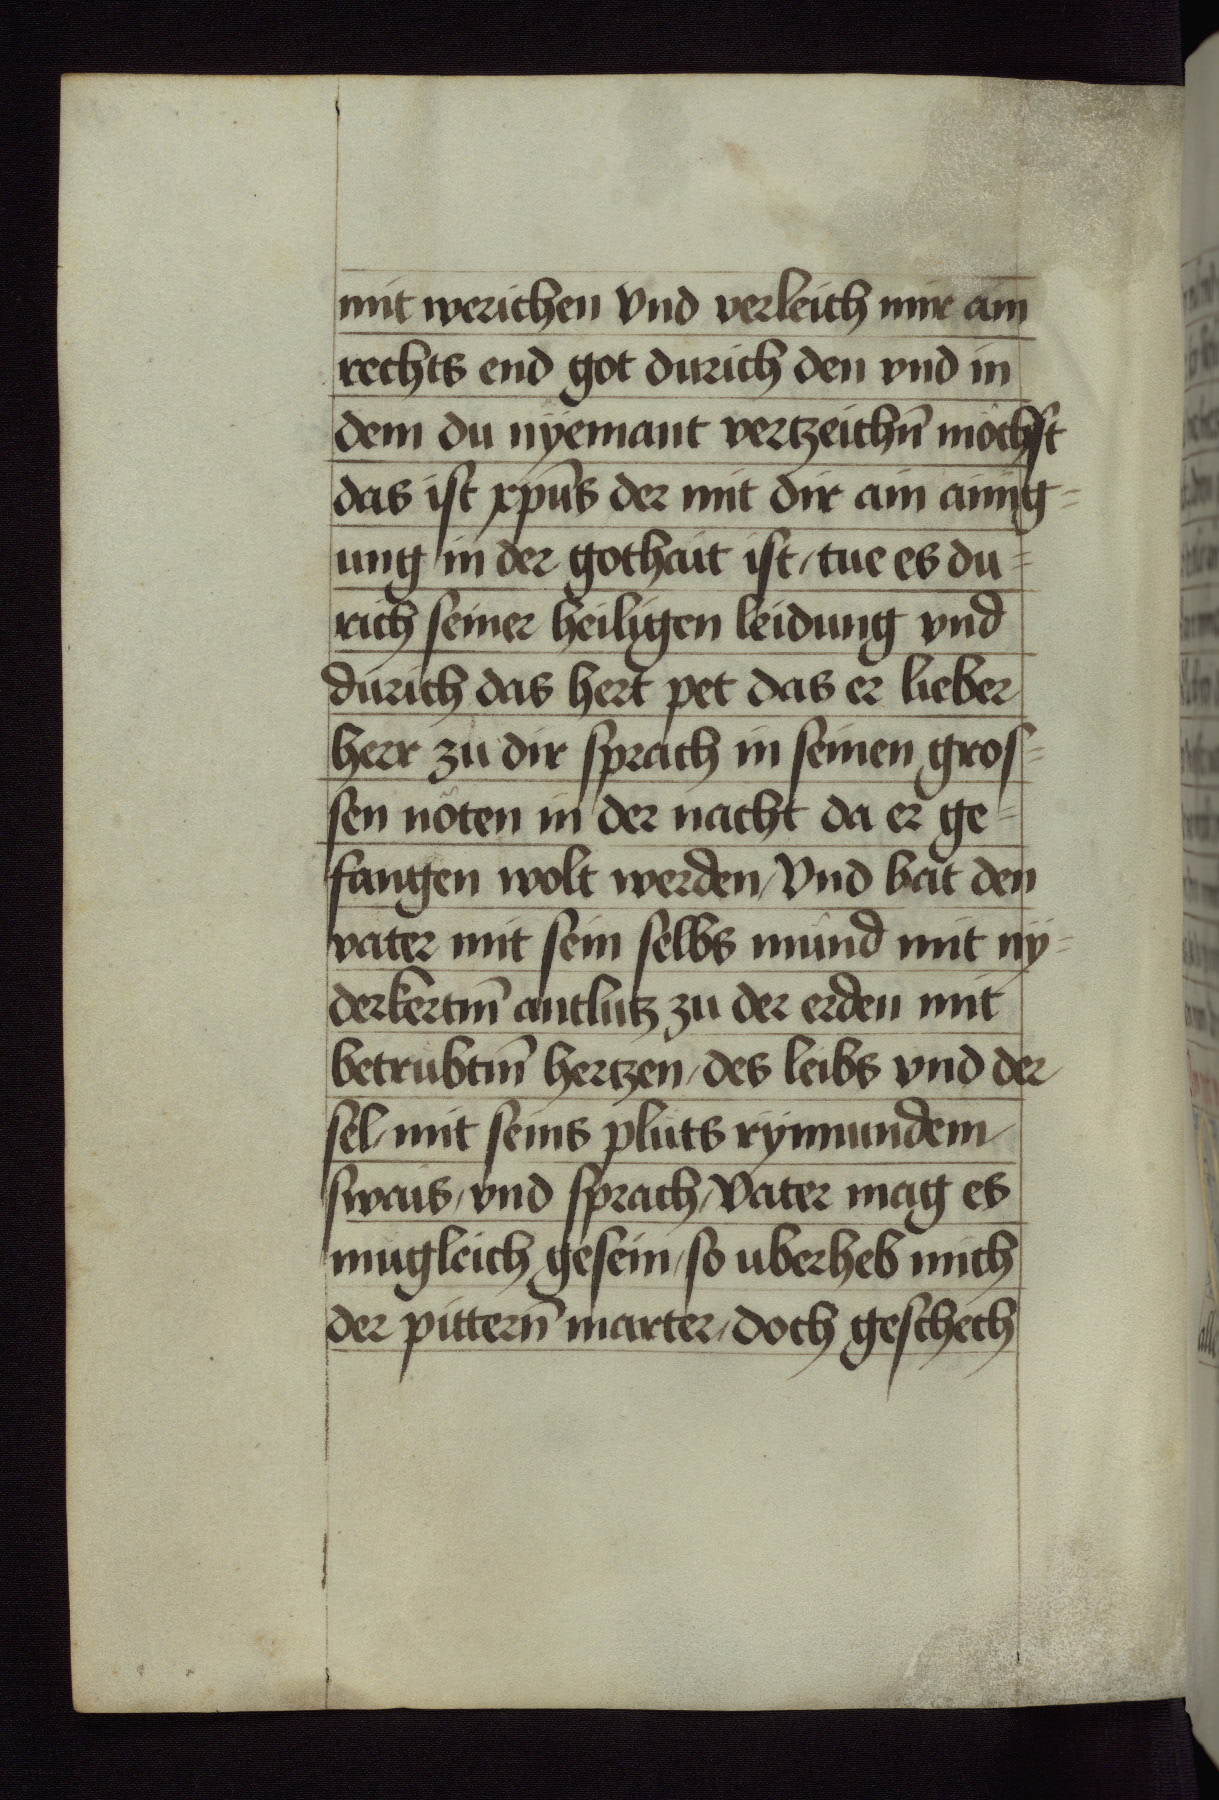 mit werichen Vnd verleich mir ain
rechts end got durich den vnd in
dem du nÿemant vertzeichn̄ möchst
das ist xp̄us der mit dir ain ainig=
ung in der gothait ist / tue es du=
rich seiner heiligen leidung vnd
durich das hert pet das er lieber
herr zu dir sprach in seinen gros=
sen nöten in der nacht da er ge=
fangen wolt werden / Vnd bat den
vater mit sein selbs mund mit nÿ=
derkertm̄ antlutz zu der erden mit
betrubtm̄ hertzen / des leibs vnd der
sel / mit seins pluts rynnundem
swais / vnd sprach / Vater mag es
mugleich gesein / so uberheb mich
der pittern̄ marter / doch geschech